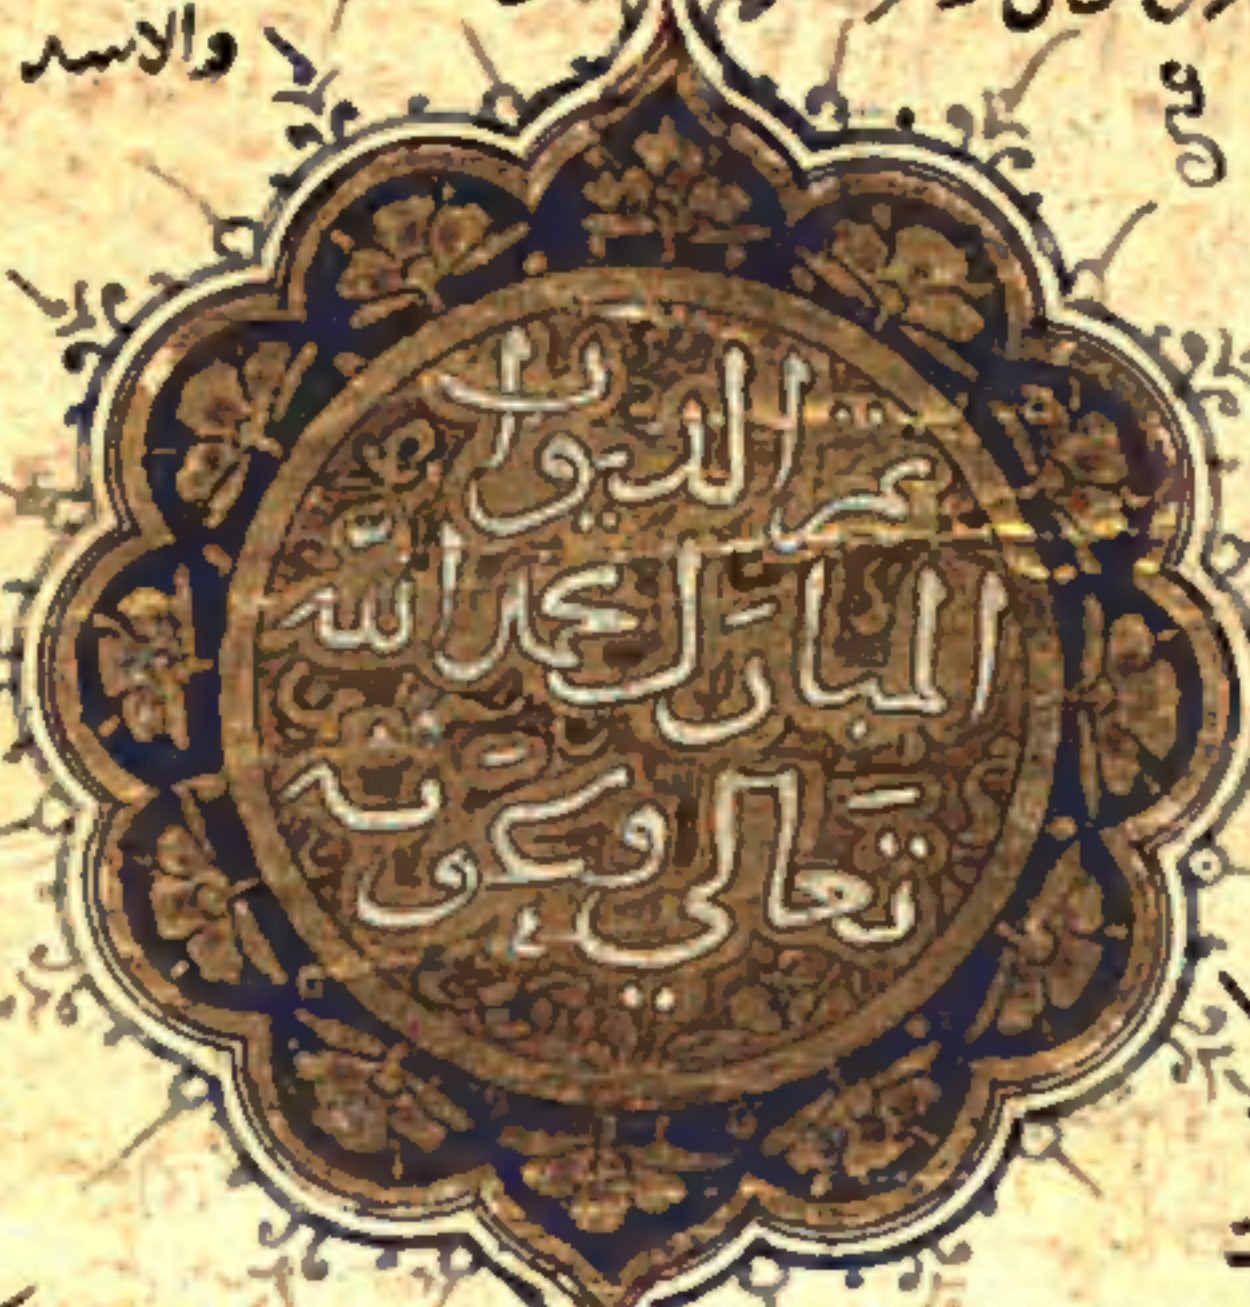 والاسد
في
تم الديوان
المبارك بحمد الله
تعالى وعونه